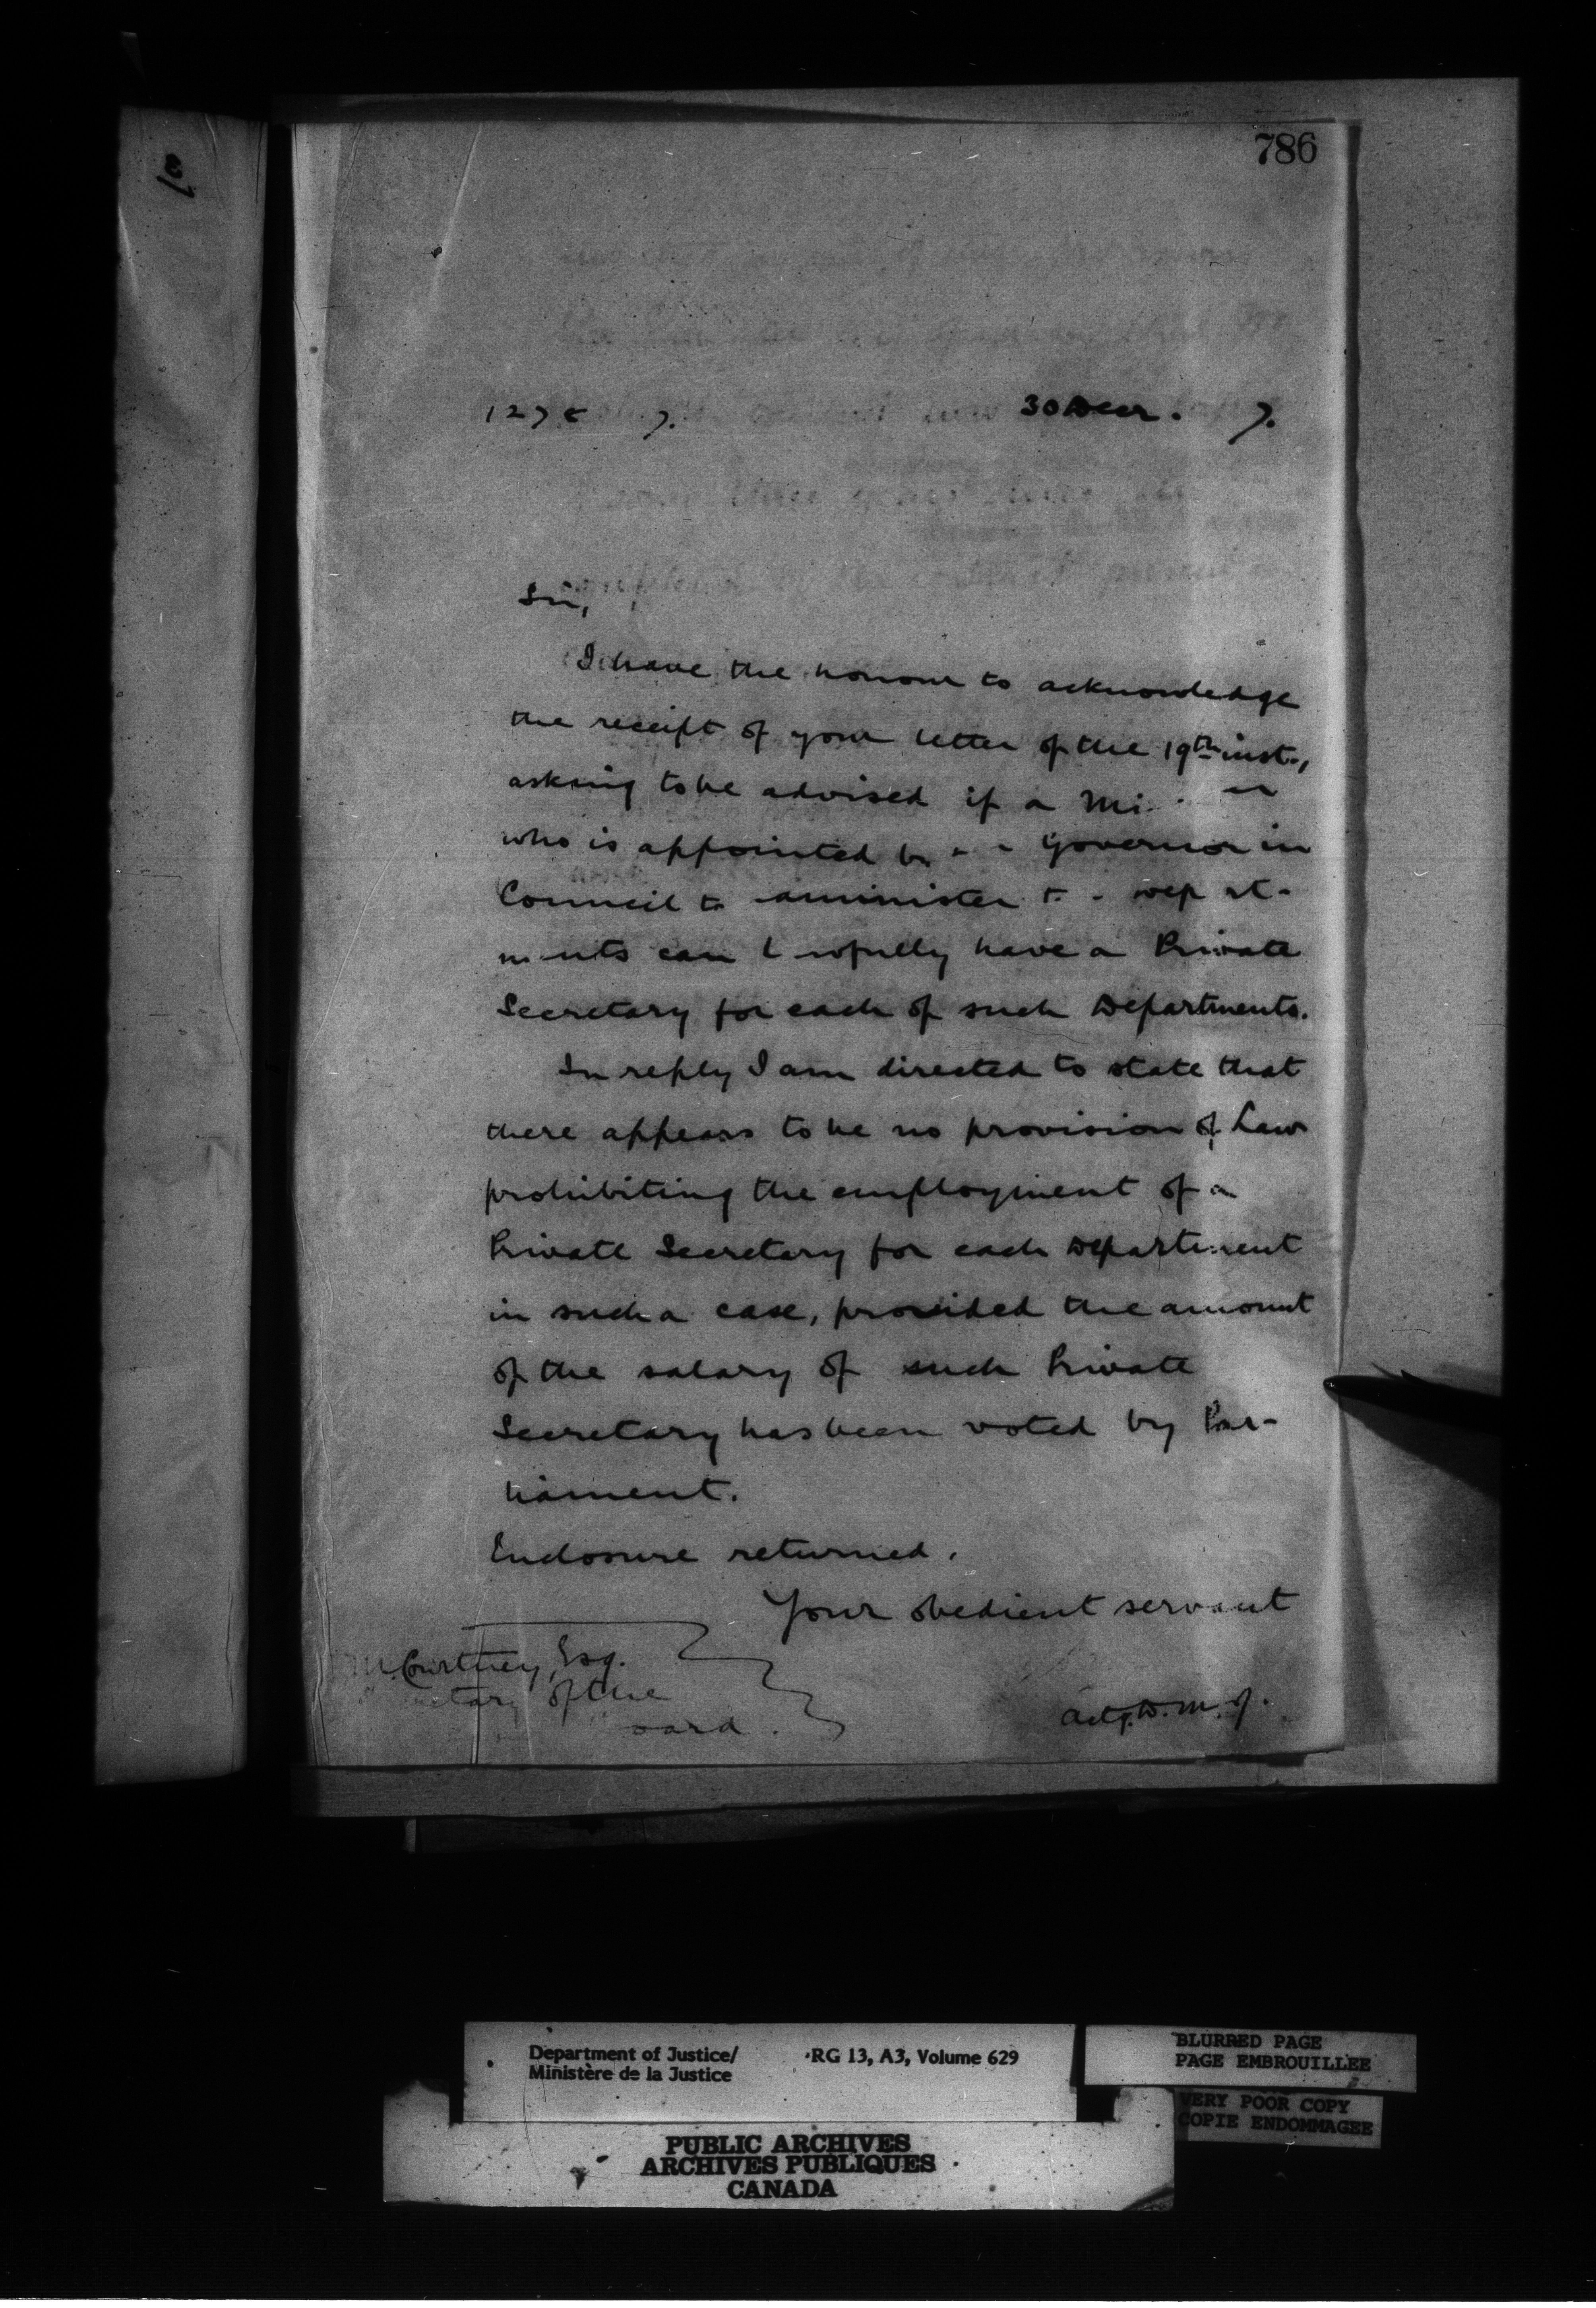 786
30 Decr. 7.
Sir,
I have the honour to acknowledge
the receipt of your letter of the 19th inst.,
asking to be advised if a
who is appointed Governor in
Council to administer
can have a Private
Secretary for each of such Departments.
In reply I am directed to state that
there appears to be no provision of Law
prohibiting the employment of a
Private Secretary for each Department
in such a case, provided the amount
of the salary of such Private
Secretary has been voted by Par-
liament.
Enclosure returned.
Your obedient servant
Courtney, Esq.
of the
Actg. D. M. J.
Department of Justice/
Ministère de la Justice
RG 13, A3, Volume 629
BLURRED PAGE
PAGE EMBROUILLEE
VERY POOR COPY
COPIE ENDOMMAGEE
PUBLIC ARCHIVES
ARCHIVES PUBLIQUES
CANADA